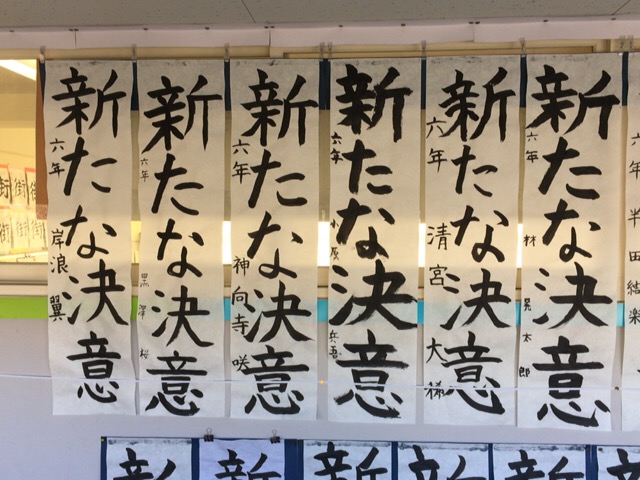 新たな決意
六年 岸浪 翼
新たな決意
六年 黒澤 桜
新たな決意
六年 神向寺 咲
新たな決意
六年 小原 兵吾
新たな決意
六年 清宮 大稀
新たな決意
六年 林 晃太郎
六年 半田 結楽
新
新
新
新
新
新
街
街